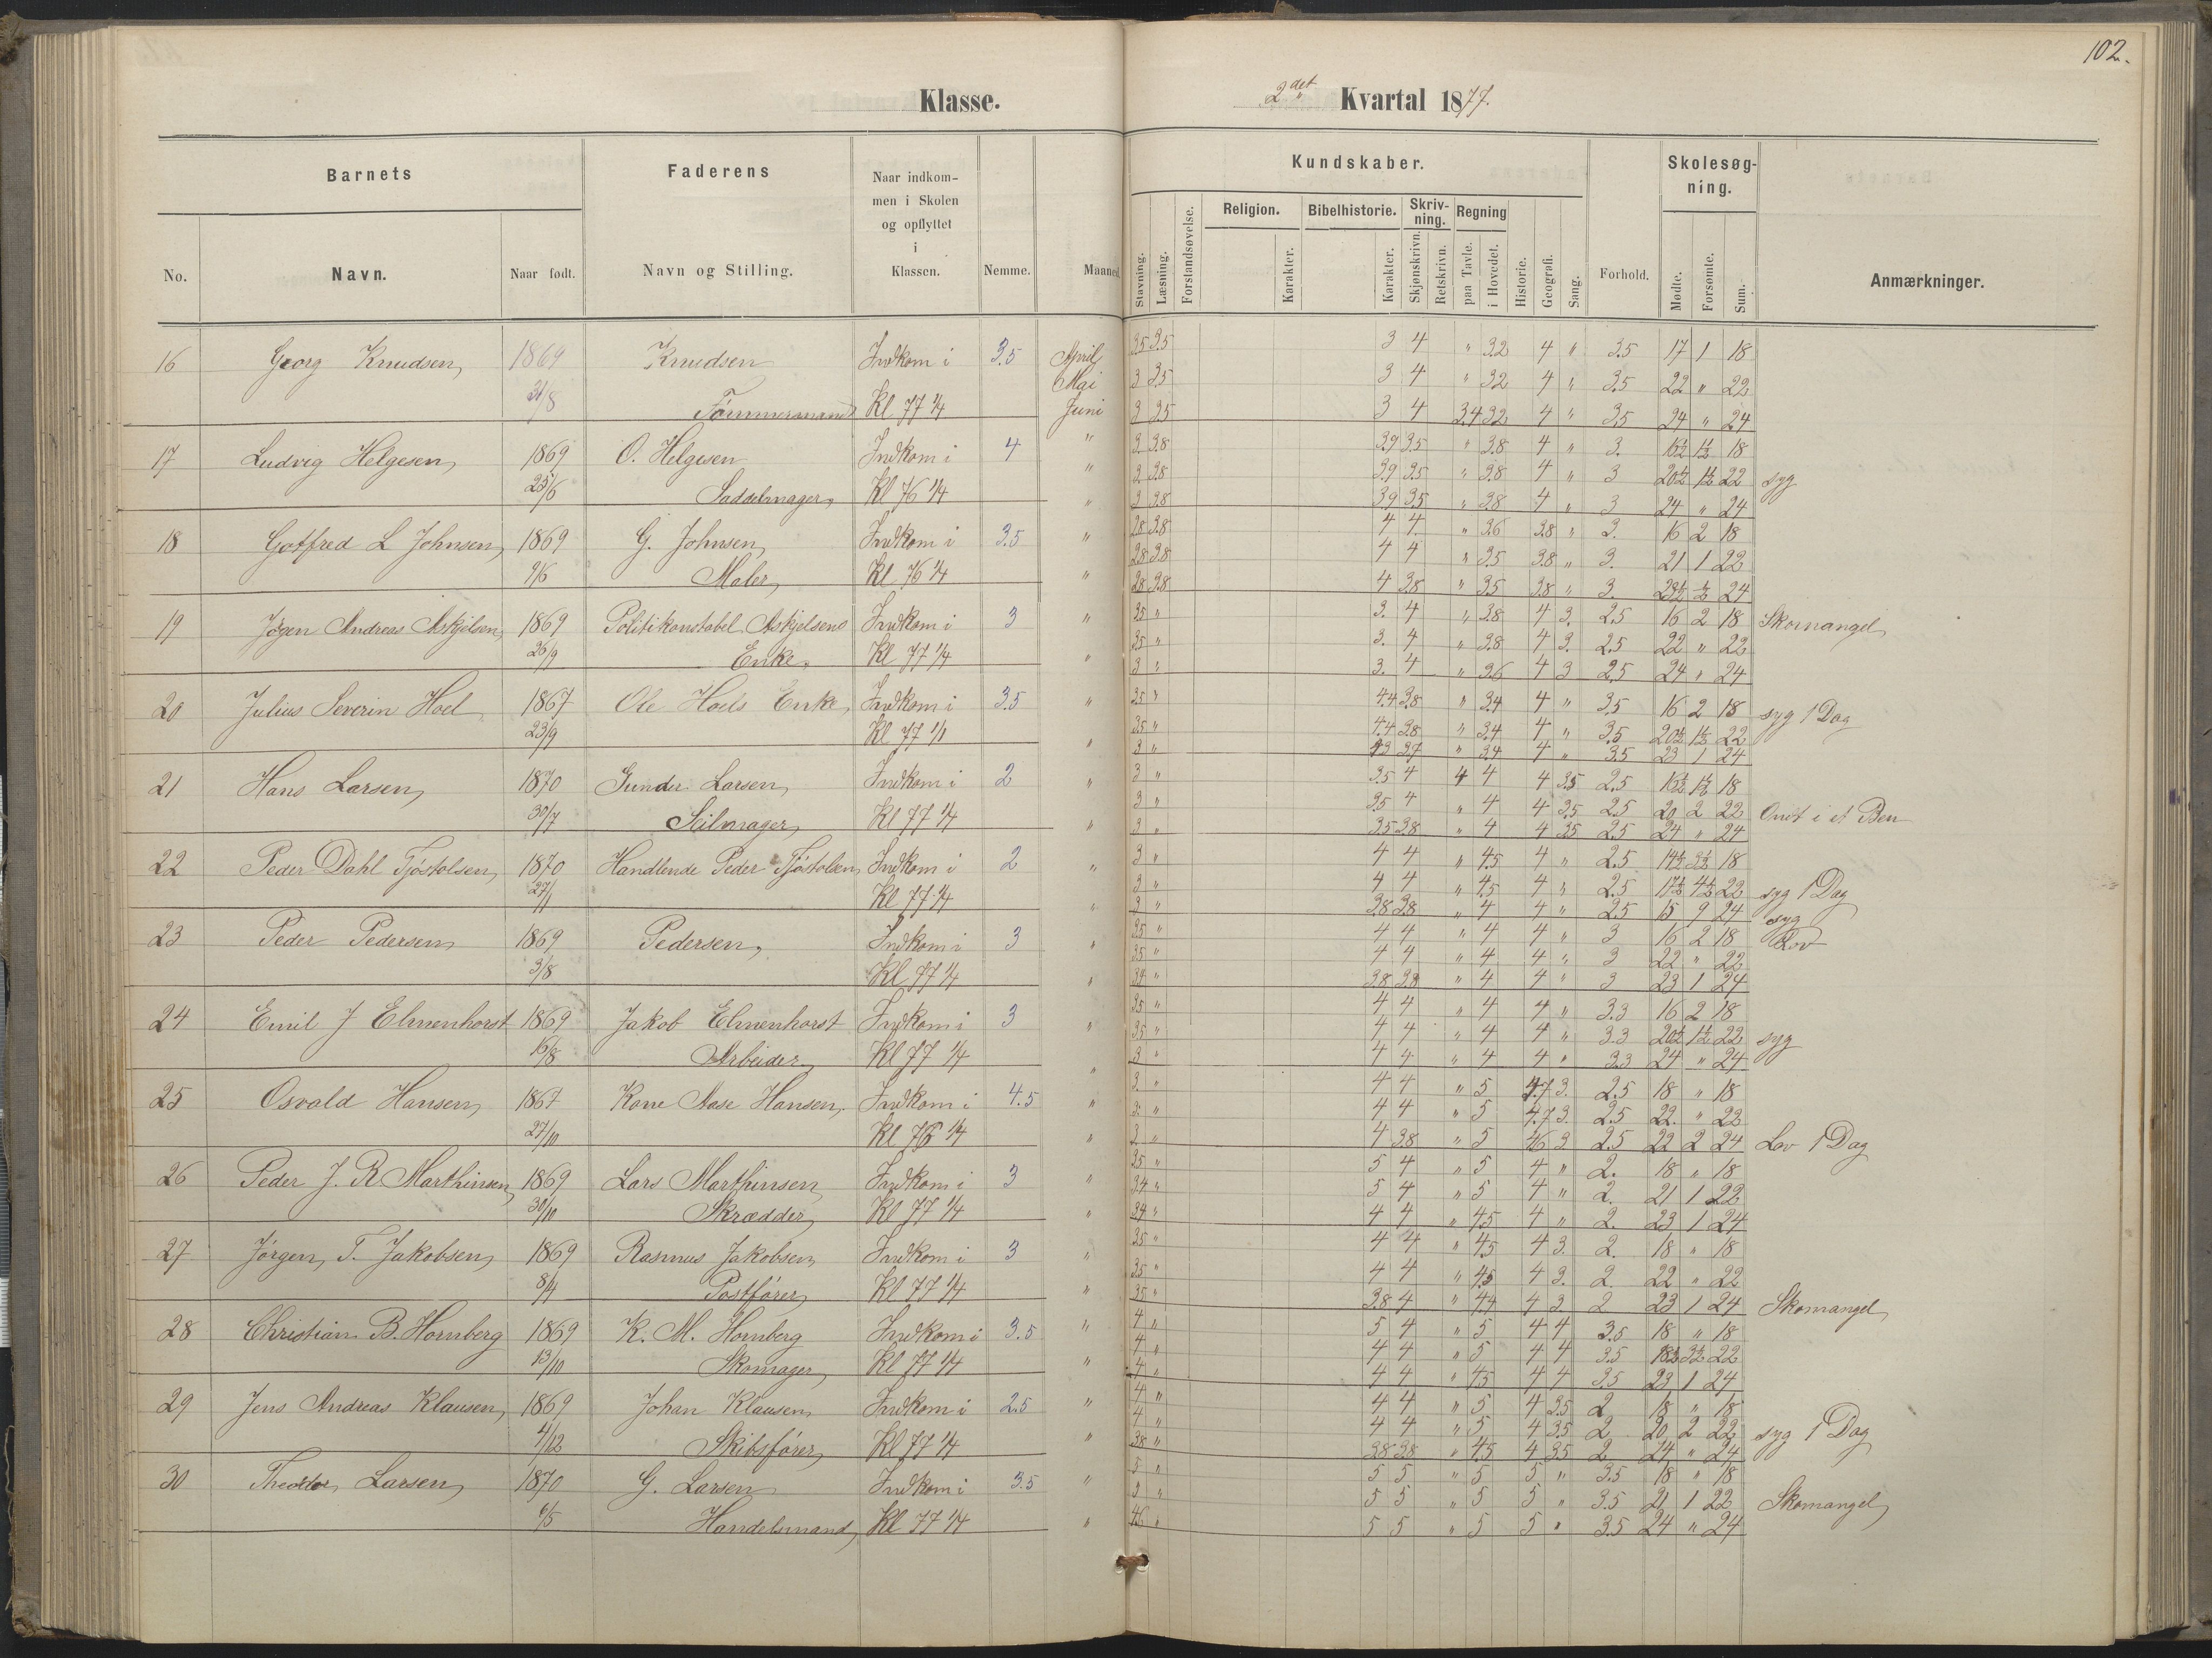 102.
Klasse.
2det Kvartal 1877.
Barnets
Faderens
Naar indkom-
men i Skolen
og opflyttet
i
Klassen.
No.
Navn.
Naar født.
Navn og Stilling.
Nemme.
Maaned.
Kundskaber.
Skolesøg-
ning.
Stavning.
Læsning.
Forstandsøvelse.
Religion.
Karakter.
Bibelhistorie.
Karakter.
Skriv-
ning.
Skjønskrivn.
Retskrivn.
Regning
paa Tavle.
i Hovedet.
Historie.
Geografi.
Sang.
Forhold.
Mødte.
Forsømte.
Sum.
Anmærkninger.
16 Georg Knudsen, 1869 Knudsen Indkom i 3.5 April 3.5 3.5 3 4 " 3.2 4 " 3.5 17 1 18
Mai 3 3.5 3 4 " 3.2 4 " 3.5 22 " 22
31/8 Tømmermand Kl 77 1/4 Juni 3 3.5 3 4 3.4 3.2 4 " 3.5 24 " 24
17 Ludvig Helgesen, 1869 O. Helgesen Indkom i 4 " 3 3.8 3.9 3.5 " 3.8 4 " 3. 16½ 1½ 18
" 3 3.8 3.9 3.5 " 3.8 4 " 3 20½ 1½ 22 syg
25/6 Saddelmager, Kl 76 1/4 " 3 3.8 3.9 3.5 " 3.8 4 " 3 24 " 24
18 Gotfred L Johnsen, 1869 G. Johnsen, Indkom i 3.5 " 2.8 3.8 4 4. " 3.6 3.8 " 3. 16 2 18
2.8 3.8 4 4 " 3.5 3.8 " 3. 21 1 22
9/6 Maler, Kl 76 1/4 " 2.8 3.8 4 3.8 " 3.5 3.8 " 3. 23½ ½ 24
19 Jögen Andreas Askjelsen, 1869 Politikonstabel Askjelsens Indkom i 3 " 3.5 " 3. 4 " 3.8 4 3. 2.5 16 2 18 Skomangel,
3.5 " 3. 4 " 3.8 4 3. 2.5 22 " 22
26/9 Enke, Kl 77 1/4 " 3 " 3. 4 " 3.6 4 3 2.5 24 " 24
20 Julius Severin Hoel 1867 Ole Hoels Enke, Indkom i 3.5 " 3.5 " 4.4 3.8 " 3.4 4 " 3.5 16 2 18 syg 1 Dag
3.5 " 4.4 3.8 " 3.4 4 " 3.5 20½ 1½ 22
23/9 Kl 77 1/1 " 3 " 4.3 3.7 " 3.4 4 " 3.5 23 1 24
21 Hans Larsen, 1870 Gunder Larsen, Indkom i 2 " 3 " 3.5 4 4 4 4 3.5 2.5 16½ 1½ 18
3 " 3.5 4 " 4 4 3.5 2.5 20 2 22 Ondt i et Ben
30/7 Seilmager, Kl 77 1/4 " 3 " 3.5 3.8 " 4 4 3.5 2.5 24 " 24
22 Peder Dahl Tjöstolsen, 1870 Handlende Peder Tjöstolsen, Indkom i 2 " 3 " 4 4 " 4.5 4 " 2.5 14½ 3½ 18
3 " 4 4 " 4.5 4 " 2.5 17½ 4½ 22 syg 1 Dag
27/1 Kl 77 1/4 " 3 " 3.8 3.8 " 4 4 " 2.5 15 9 24 syg
23 Peder Pedersen 1869 Pedersen, Indkom i 3 " 3.5 " 4 4 " 4 4 " 3 16 2 18 Lov
3.5 " 4 4 " 4 4 " 3 22 " 22
3/8 Kl 77 1/4 " 3.4 " 3.8 3.8 " 4 4 " 3 23 1 24
24 Emil J Elmenhorst 1869 Jakob Elmenhorst Indkom i 3 " 3.5 " 4 4 " 4 4 " 3.3 16 2 18
3.5 " 4 4 " 4 4 " 3.3 20½ 1½ 22 syg
16/8 Arbeider, Kl 77 1/4 " 3 " 4 4 " 4 4 " 3.3 24 " 24
25 Osvald Hansen, 1867 Kone Aase Hansen, Indkom i 4.5 " 3. " 4 4 " 5 4.7 3. 2.5 18 " 18
3. " 4 4 " 5 4.7 3. 2.5 22. " 22
27/10 Kl 76 1/4 " 3. " 4 3.8 " 5 4.6 3 2.5 22 2 24 Lov 1 Dag
26 Peder J. R Marthinsen, 1869 Lars Marthinsen Indkom i 3 " 3.5 " 5 4 " 5 4 " 2. 18 " 18
3.4 " 5 4 " 5 4 " 2. 21 1 22
30/10 Skrædder, Kl 77 1/4 " 3.4 " 4 4 " 4.5 4 " 2. 23 1 24
27 Jörgen, T. Jakobsen, 1869 Rasmus Jakobsen Indkom i 3 " 3.5 " 4 4 " 4.5 4 3. 2. 18 " 18
3.5 " 4 4 " 4.5 4 3. 2. 22 " 22
8/4 Postförer, Kl 77 1/4 " 3.5 " 3.8 4 " 4.4 4 3 2 23 1 24 Skomangel,
28 Christian B. Hornberg 1869 K. M. Hornberg Indkom i 3.5 " 4 " 5 4 " 5 4 4 3.5 18 " 18
4 " 4 4 " 5 4 4 3.5 18½ 3½ 22
13/10 Skomager, Kl 77 1/4 " 4 " 4 4 " 4.5 4 4 3.5 23 1 24
29 Jens Andreas Klausen, 1869 Johan Klausen Indkom i 2.5 " 4 " 4 4 " 5 4 3.5 2 18 " 18
4 " 4 4 " 5 4 3.5 2 20 2 22 syg 1 Dag
4/12 Skibsförer, Kl 77 1/4 " 3.8 " 3.8 3.8 " 4.5 4 3.5 2 24 " 24
30 Theodor Larsen, 1870 G. Larsen Indkom i 3.5 " 5 " 5 5 " 5 5 " 3.5 18 " 18
5 " 5 5 " 5 5 " 3.5 21 1 22 Skomangel,
6/5 Handelsmand, Kl 77 1/4 " 4.6 " 5 5 " 5 5 " 3.5 24 " 24